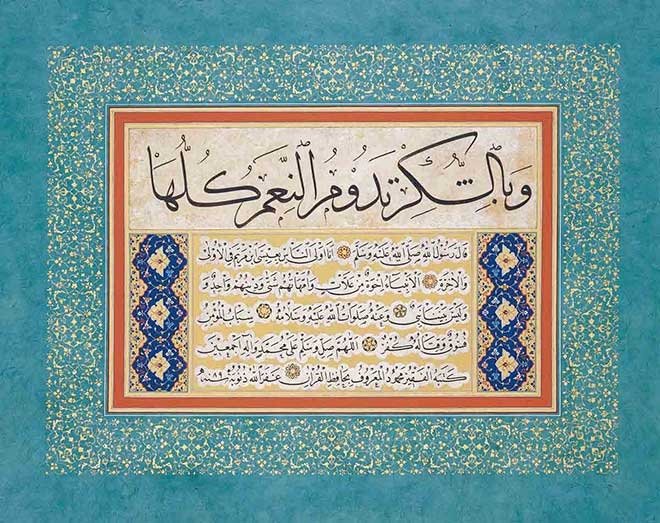 وَبِالشُّكْرِ تَدُومُ النِّعَمُ كُلُّهَا
قَالَ رَسُولُ اللهِ صَلَّى اللهُ عَلَيْهِ وَسَلَّمَ اَنَا اَوْلَى النَّاسِ بِعِيسَى بْنِ مَرْيَمَ فِي الْاُولَى
وَالْاٰخِرَةِ الْاَنْبِيَاءُ اِخْوَةٌ مِنْ عَلَّاتٍ وَاُمَّهَاتُهُمْ شَتَّى وَدِينُهُمْ وَاحِدٌ وَ
وَلَيْسَ بَيْنَنَا نَبِيٌّ وَعَنْهُ صَلَوَاتُ اللهِ عَلَيْهِ وَسَلَامُهُ سِبَابُ الْمُؤْمِنِ
فُسُوقٌ وَقِتَالُهُ كُفْرٌ اَللّٰهُمَّ صَلِّ وَسَلِّمْ عَلَى مُحَمَّدٍ وَاٰلِهِ اَجْمَعِينَ
كَتَبَهُ الْفَقِيرُ مَحْمُودُ الْمَعْرُوفُ بِحَافِظِ الْقُرْاٰنِ غَفَرَ اللهُ ذُنُوبَهُ